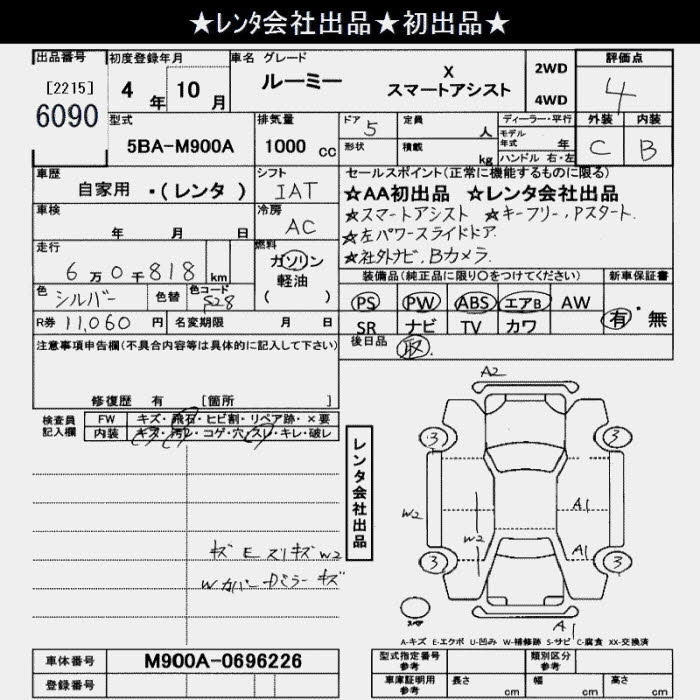 ★レンタ会社出品★初出品★
出品番号 初度登録年月 車名 グレード 評価点
[2215] 4年 10月 ルーミー X スマートアシスト 2WD 4WD 4
6090
型式 排気量 ドア 5 定員 人 ディーラー・平行 外装 内装
5BA-M900A 1000 cc 形状 積載 kg モデル年式 年 ハンドル 右・左 C B
車歴 自家用 ・(レンタ ) シフト IAT セールスポイント(正常に機能するものに限る)
★AA初出品 ★レンタ会社出品
車検 年 月 日 冷房 AC ★スマートアシスト ★キーフリー,Pスタート
★左パワースライドドア
走行 6万0千818 km 燃料 ガソリン 軽油 ( ) ★社外ナビ,Bカメラ
装備品(純正品に限り○をつけてください) 新車保証書
色 シルバー 色替 色コード S28 PS PW ABS エアB AW 有・無
R券 11,060 円 名変期限 月 日 SR ナビ TV カワ
注意事項申告欄(不具合内容等は具体的に記入して下さい) 後日品 取
修復歴 有 [箇所 ]
検査員記入欄 FW キズ・飛石・ヒビ割・リペア跡・×要
内装 キズ・汚レ・コゲ・穴・スレ・キレ・破レ
レンタ会社出品
A2
3 3
W2 A1
W2 A1
3 3
キズ E スリキズ W2
W カバー ミラー キズ
スペア A1
A-キズ E-エクボ U-凹み W-補修跡 S-サビ C-腐食 XX-交換済
車体番号 M900A-0696226 型式指定番号 参考 類別区分 参考
登録番号 車庫証明用 参考 長さ cm 幅 cm 高さ cm